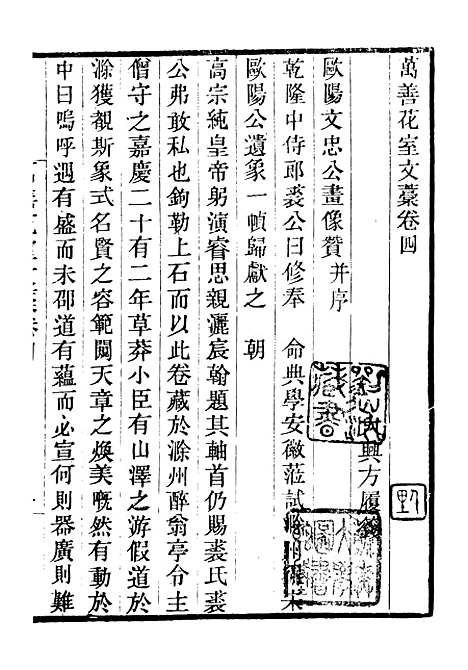 萬善花室文藁卷四
興方履籛
歐陽文忠公畫像贊 并序
乾隆中侍郎裘公曰修奉 命典學安徽蒞試滁州宋
歐陽公遺象一幀歸獻之 朝
高宗純皇帝躬演睿思親灑宸翰題其軸首仍賜裘氏裘
公弗敢私也鉤勒上石而以此卷藏於滁州醉翁亭令主
僧守之嘉慶二十有二年草莽小臣有山澤之游假道於
滁獲覩斯象式名賢之容範闚天章之煥美嘅然有動於
中曰嗚呼遇有盛而未邵道有蘊而必宣何則器廣則難